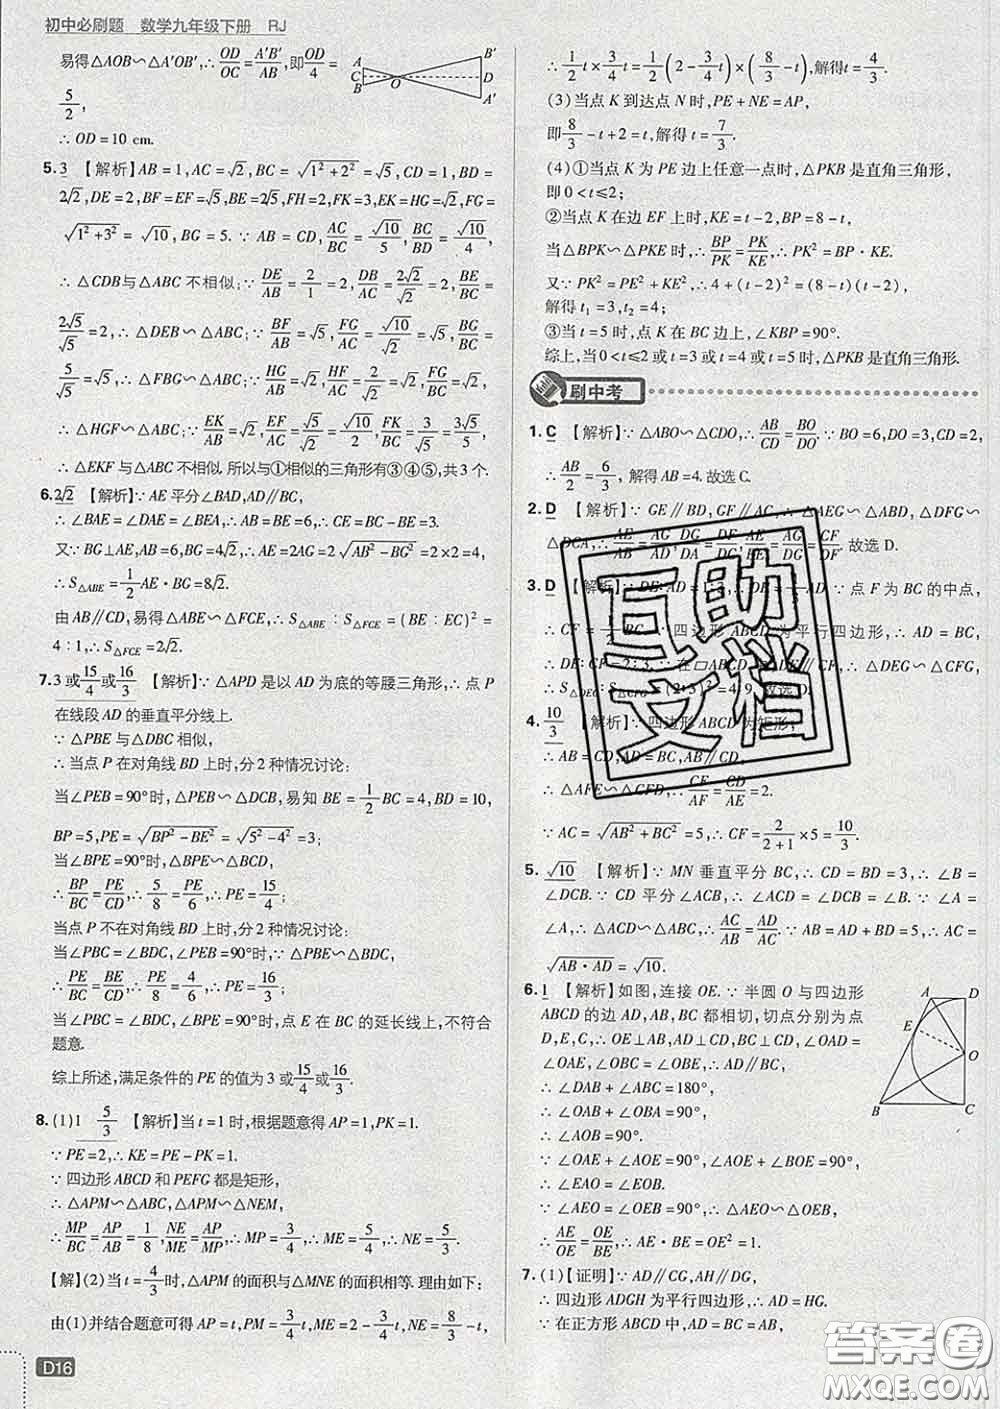 初中必刷题 数学九年级下册 RJ
易得△AOB∽△A'OB',∴OD/OC=A'B'/AB,即OD/4=
5/2,
∴OD=10 cm.
A
C
B
O
B'
D
A'
5.3 【解析】AB=1,AC=√2,BC=√(1²+2²)=√5,CD=1,BD=
2√2,DE=2,BE=2√5,BF=√5,FH=2,FK=3,EK=HG=√2,FG=
√(1²+3²)=√10,BG=5.∵AB=CD,AC/BC=√10/5,BC/BD=√10/4,
∴△CDB与△ABC不相似;∵DE/AB=2/1=2,DB/AC=2√2/√2=2,BE/BC=
2√5/√5=2,∴△DEB∽△ABC;∵BF/AB=√5,FG/AC=√10/√2=√5,BG/BC=
5/√5=√5,∴△FBG∽△ABC;∵HG/AB=√2,HF/AC=2/√2=√2,FG/BC=√10/√5=√2,
∴△HGF∽△ABC;∵EK/AB=√2,EF/AC=√5/√2=√10/2,FK/BC=3/√5=3√5/5,
∴△EKF与△ABC不相似.所以与①相似的三角形有③④⑤,共3个.
6.2√2 【解析】∵AE平分∠BAD,AD∥BC,
∴∠BAE=∠DAE=∠BEA,∴AB=BE=6,∴CE=BC-BE=3.
又∵BG⊥AE,AB=6,BG=4√2,∴AE=2AG=2√(AB²-BG²)=2×2=4,
∴S△ABE=1/2AE·BG=8√2.
由AB∥CD,易得△ABE∽△FCE,∴S△ABE:S△FCE=(BE:EC)²=
4:1,∴S△FCE=2√2.
7.3或15/4或16/3 【解析】∵△APD是以AD为底的等腰三角形,∴点P
在线段AD的垂直平分线上.
∵△PBE与△DBC相似,
∴当点P在对角线BD上时,分2种情况讨论:
当∠PEB=90°时,△PEB∽△DCB,易知BE=1/2BC=4,BD=10,
BP=5,PE=√(BP²-BE²)=√(5²-4²)=3;
当∠BPE=90°时,△BPE∽△BCD,
∴BP/BC=PE/CD,∴5/8=PE/6,∴PE=15/4;
当点P不在对角线BD上时,分2种情况讨论:
当∠PBC=∠BDC,∠PEB=90°时,△PBE∽△BDC,
∴PE/BC=BE/CD,∴PE/8=4/6,∴PE=16/3;
当∠PBC=∠BDC,∠BPE=90°时,点E在BC的延长线上,不符合
题意.
综上所述,满足条件的PE的值为3或15/4或16/3.
8.(1)1 5/3 【解析】当t=1时,根据题意得AP=1,PK=1.
∵PE=2,∴KE=PE-PK=2-1=1.
∵四边形ABCD和PEFG都是矩形,
∴△APM∽△ABC,△APM∽△NEM,
∴MP/BC=AP/AB=1/8,NE/ME=AP/MP,∴MP=3/4,∴ME=5/4,∴NE=5/3.
【解】(2)当t=4/3时,△APM的面积与△MNE的面积相等.理由如下:
由(1)并结合题意可得AP=t,PM=3/4t,ME=2-3/4t,NE=8/3-t,
D16
∴1/2t×3/4t=1/2(2-3/4t)×(8/3-t),解得t=4/3.
(3)当点K到达点N时,PE+NE=AP,
即8/3-t+2=t,解得t=7/3.
(4)①当点K为PE边上任意一点时,△PKB是直角三角形,
即0<t≤2;
②当点K在边EF上时,KE=t-2,BP=8-t,
当△BPK∽△PKE时,∴BP/PK=PK/KE,∴PK²=BP·KE.
又∵PK²=PE²+KE²,∴4+(t-2)²=(8-t)(t-2),
解得t₁=3,t₂=4;
③当t=5时,点K在BC边上,∠KBP=90°.
综上,当0<t≤2或t=3或t=4或t=5时,△PKB是直角三角形.
刷中考
1.C 【解析】∵△ABO∽△CDO,∴AB/CD=BO/DO.∵BO=6,DO=3,CD=2,
∴AB/2=6/3,解得AB=4.故选C.
2.D 【解析】∵GE∥BD,GF∥AC,∴△AEG∽△ABD,△DFG∽
△DCA,∴AE/AB=AG/AD,DG/DA=DF/DC,AE/BE=AG/DG=CF/DF.故选D.
3.D 【解析】∵DE:AD=1:3,∵点F为BC的中点,
∴CF=1/2BC.∵四边形ABCD为平行四边形,∴
∴DE:CF=2:3.∵在▱ABCD中,DE∥BC,∴△DEG∽△CFG,
∴S△DEG:S△CFG=(2:3)²=4:9.故选D.
4.10/3 【解析】∵四边形ABCD为矩形,
∴AB=CD,AD=BC,AB∥CD,
∴△AFE∽△CFD,∴CF/AF=CD/AE=2.
∵AC=√(AB²+BC²)=5,∴CF=2/(2+1)×5=10/3.
5.√10 【解析】∵MN垂直平分BC,∴CD=BD=3,∴∠B=
∠DCB.∵CD平分∠ACB,∴∠ACD=∠DCB=∠B.∵∠A=
∠A,∴△ACD∽△ABC,∴AC/AB=AD/AC.∵AB=AD+BD=5,∴AC=
√(AB·AD)=√10.
6.1 【解析】如图,连接OE.∵半圆O与四边形
ABCD的边AD,AB,BC都相切,切点分别为点
D,E,C,∴OE⊥AB,AD⊥CD,BC⊥CD,∠OAD=
∠OAE,∠OBC=∠OBE,∴AD∥BC,
∴∠DAB+∠ABC=180°,
∴∠OAB+∠OBA=90°,
∴∠AOB=90°.
∵∠OAE+∠AOE=90°,∠AOE+∠EOB=90°,
∴∠EAO=∠EOB.
∵∠AEO=∠OEB=90°,∴△AEO∽△OEB,
∴AE/OE=OE/BE,∴AE·BE=OE²=1.
A
D
E
O
B
C
7.(1)【证明】∵AD∥CG,AH∥DG,
∴四边形ADGH为平行四边形,∴AD=HG.
∵在正方形ABCD中,AD=BC,∴BC=HG,
互助
文档
答案圈
MXQE.COM